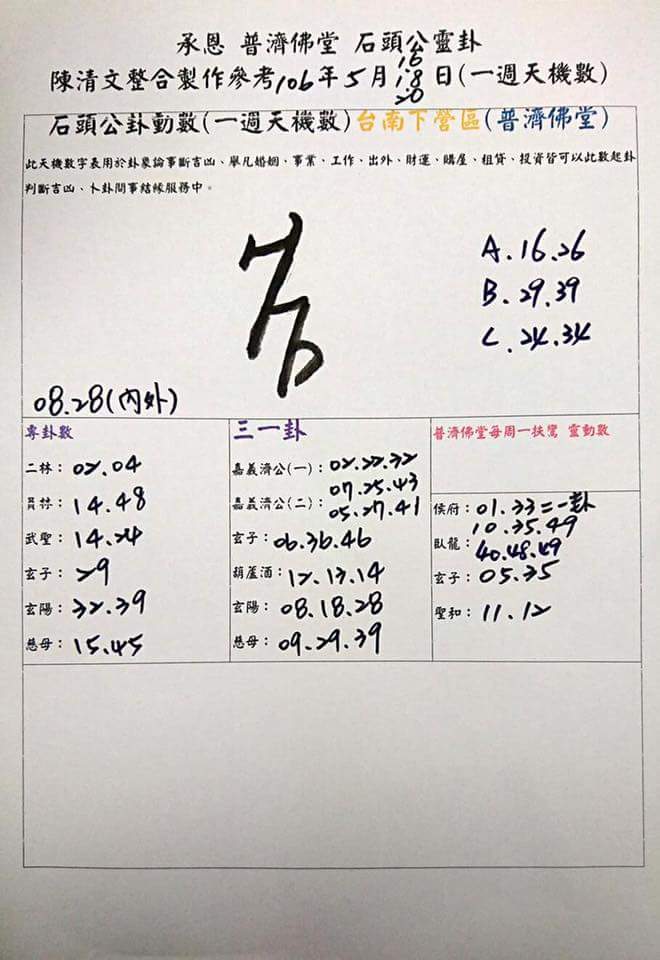 承恩 普濟佛堂 石頭公靈卦
陳清文整合製作參考106年5月16.18.20日(一週天機數)
石頭公卦動數(一週天機數)台南下營區(普濟佛堂)
此天機數字表用於卦象論事斷吉凶、舉凡婚姻、事業、工作、出外、財運、購屋、租貸、投資皆可以此數起卦
判斷吉凶、卜卦問事結緣服務中。
A.16.26
B.29.39
C.24.34
08.28(內外)
專卦數
二林：02.04
員林：14.48
武聖：14.24
玄子：29
玄陽：32.39
慈母：15.45
三一卦
嘉義濟公(一)：02.22.32
07.25.43
嘉義濟公(二)：05.27.41
玄子：06.36.46
葫蘆酒：12.13.14
玄陽：08.18.28
慈母：09.29.39
普濟佛堂每周一扶鸞 靈動數
侯府：01.33=一卦
10.35.49
臥龍：40.48.49
玄子：05.35
聖和：11.12